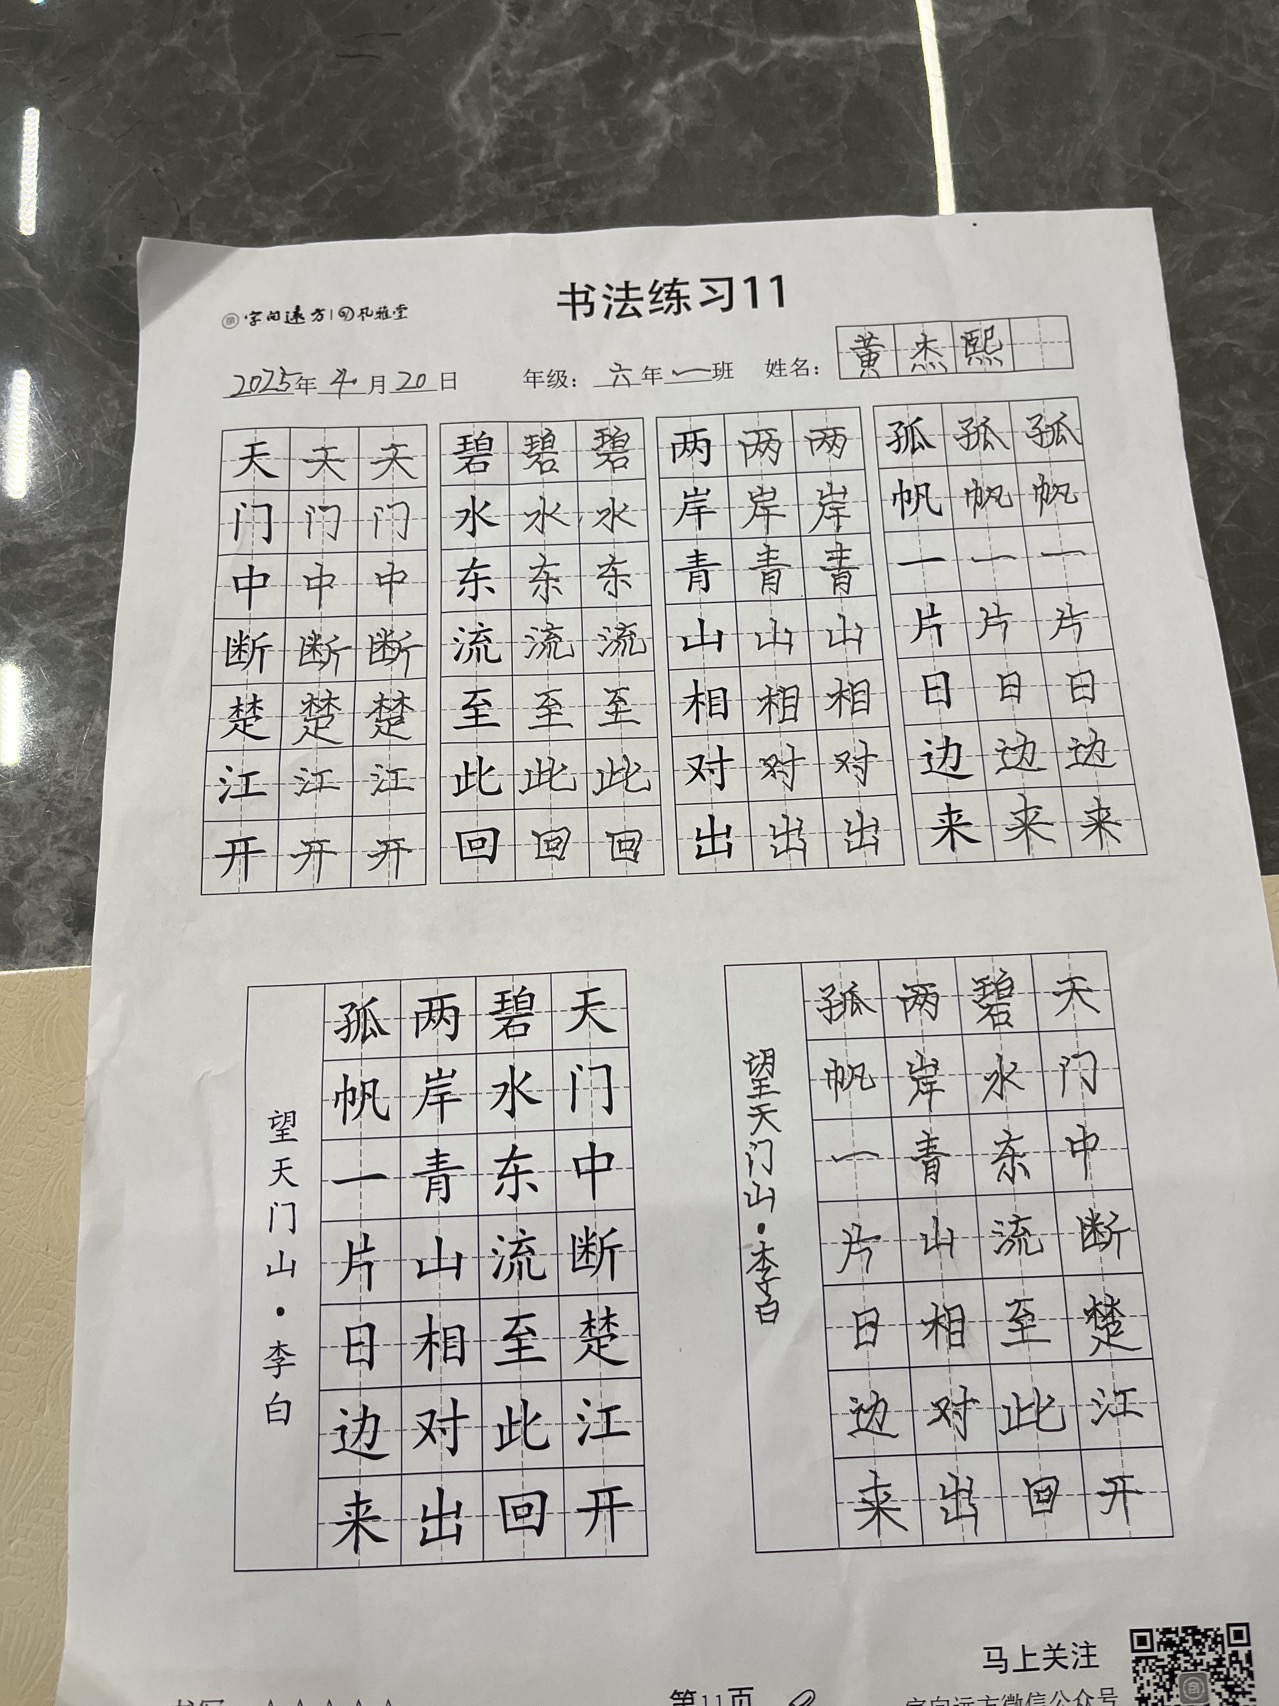 字向远方 孔雅堂
书法练习11
2025年4.月20日 年级：六年一班 姓名：黄杰熙
天天天 碧碧碧 两两两 孤孤孤
门门门 水水水 岸岸岸 帆帆帆
中中中 东东东 青青青 一一一
断断断 流流流 山山山 片片片
楚楚楚 至至至 相相相 日日日
江江江 此此此 对对对 边边边
开开开 回回回 出出出 来来来
天门中断楚江开
碧水东流至此回
两岸青山相对出
孤帆一片日边来
望天门山·李白
天门中断楚江开
碧水东流至此回
两岸青山相对出
孤帆一片日边来
望天门山·李白
马上关注
第11页
字向远方微信公众号